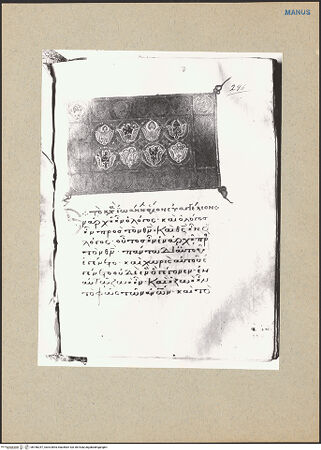 MANUS
ἐν ἀρχῆ ἦν ὁ λόγος· καὶ ὁ λόγος
ἦν πρὸς τὸν θν· καὶ θς ἦν ὁ
λόγος· οὗτος ἦν ἐν ἀρχῆ πρ
τὸν θν· πάντα δι αὐτοῦ
ἐγένετο· καὶ χωρὶς αὐτοῦ
ἐγένετο οὐδὲ ἓν ὃ γέγονεν ἐν
αὐτῶ ζωὴ ἦν· καὶ ἡ ζωὴ ἦν
τὸ φῶς τῶν ἀνων· καὶ τὸ